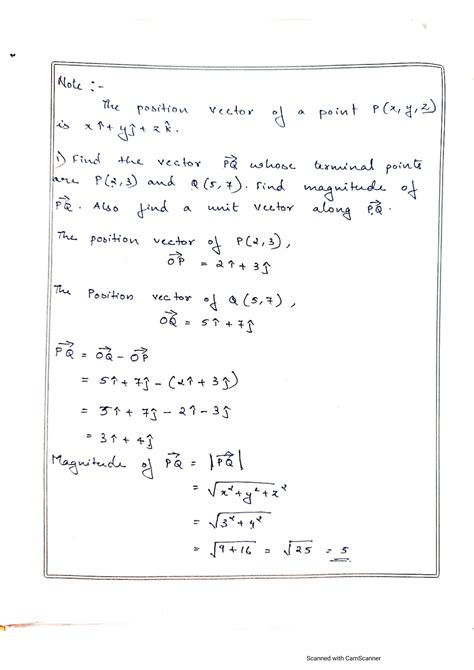 Note :-
The position vector of a point P(x, y, z)
is xî + yĵ + zk̂.
1) Find the vector P⃗Q⃗ whose terminal points
are P(2,3) and Q(5,7). Find magnitude of
P⃗Q⃗. Also find a unit vector along P⃗Q⃗.
The position vector of P(2,3),
O⃗P⃗ = 2î + 3ĵ
The Position vector of Q(5,7),
O⃗Q⃗ = 5î + 7ĵ
P⃗Q⃗ = O⃗Q⃗ - O⃗P⃗
= 5î + 7ĵ - (2î + 3ĵ)
= 5î + 7ĵ - 2î - 3ĵ
= 3î + 4ĵ
Magnitude of P⃗Q⃗ = |P⃗Q⃗|
= √x² + y² + z²
= √3² + 4²
= √9 + 16 = √25 = 5
Scanned with CamScanner